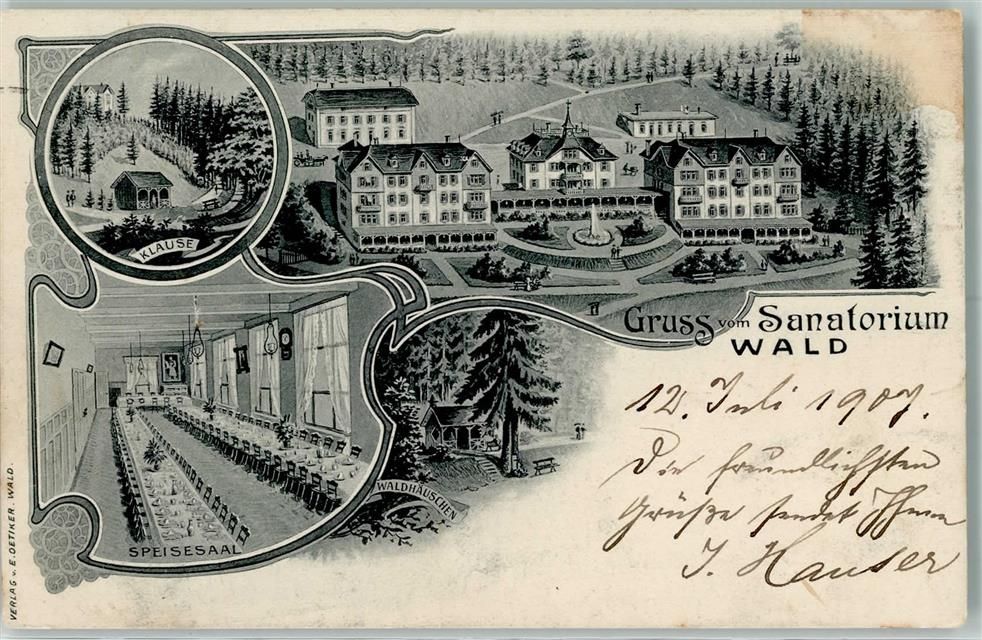 KLAUSE
Gruss vom Sanatorium
WALD
12. Juli 1907.
Die freundlichsten
Grüße sendet Ihnen
J. Hauser
WALDHÄUSCHEN
SPEISESAAL
VERLAG v. E. OETIKER. WALD.